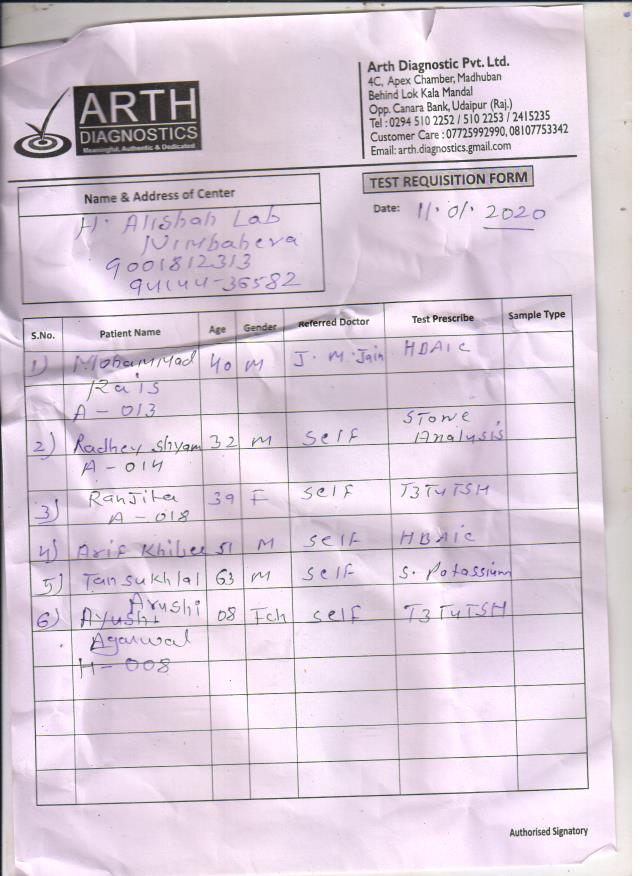 ARTH
DIAGNOSTICS
Meaningful, Authentic & Dedicated
Arth Diagnostic Pvt. Ltd.
4C, Apex Chamber, Madhuban
Behind Lok Kala Mandal
Opp. Canara Bank, Udaipur (Raj.)
Tel : 0294 510 2252 / 510 2253 / 2415235
Customer Care : 07725992990, 08107753342
Email: arth.diagnostics.gmail.com
TEST REQUISITION FORM
Name & Address of Center
H. Alishah Lab
Nimbahera
9001812313
94144-36582
Date: 11.01.2020
S.No. Patient Name Age Gender Referred Doctor Test Prescribe Sample Type
1) Mohammad 40 M J. M. Jain HBAIC
Rais
A-013
2) Radhey Shyam 32 M Self Stone Analysis
A-014
3) Ranjita 39 F Self T3T4TSH
A-018
4) Arif 51 M Self HBAIC
5) Tansukhlal 63 M Self S. Potassium
6) Ayushi Arushi 08 Fch Self T3T4TSH
Agarwal
H-008
Authorised Signatory